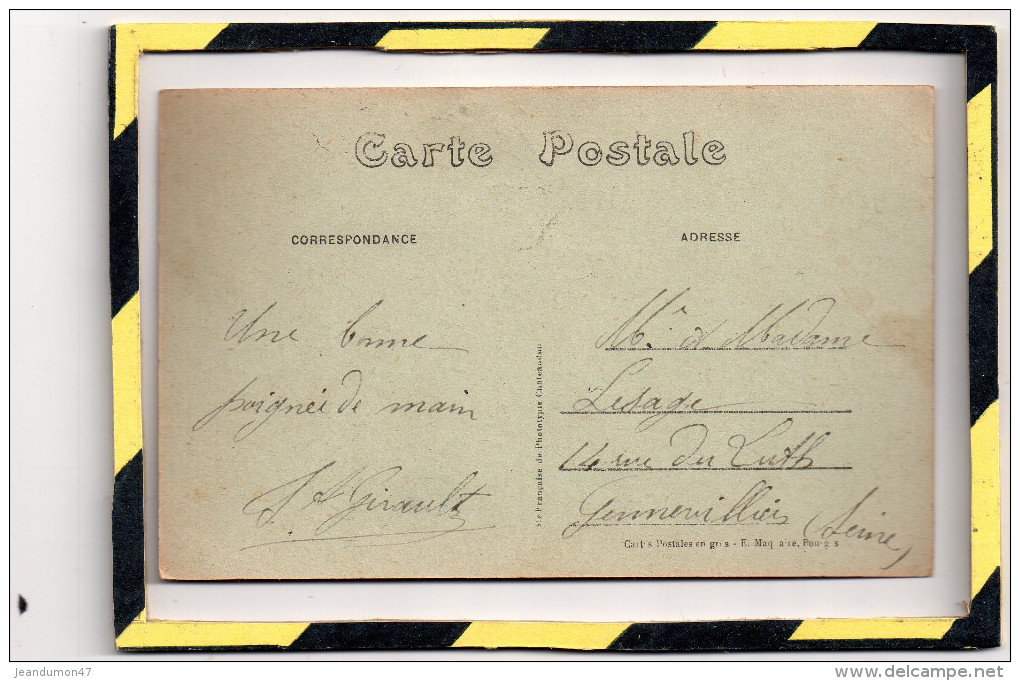 Carte Postale
CORRESPONDANCE
Une bonne
poignée de main
Girault
ADRESSE
Mr et Madame
Lesage
14 rue du Luth
Gennevilliers
(Seine)
Sté Française de Phototypie Châteaudun
Cartes Postales en gros - E. Maquaire, Bourges
jeandumon47
www.delcampe.net